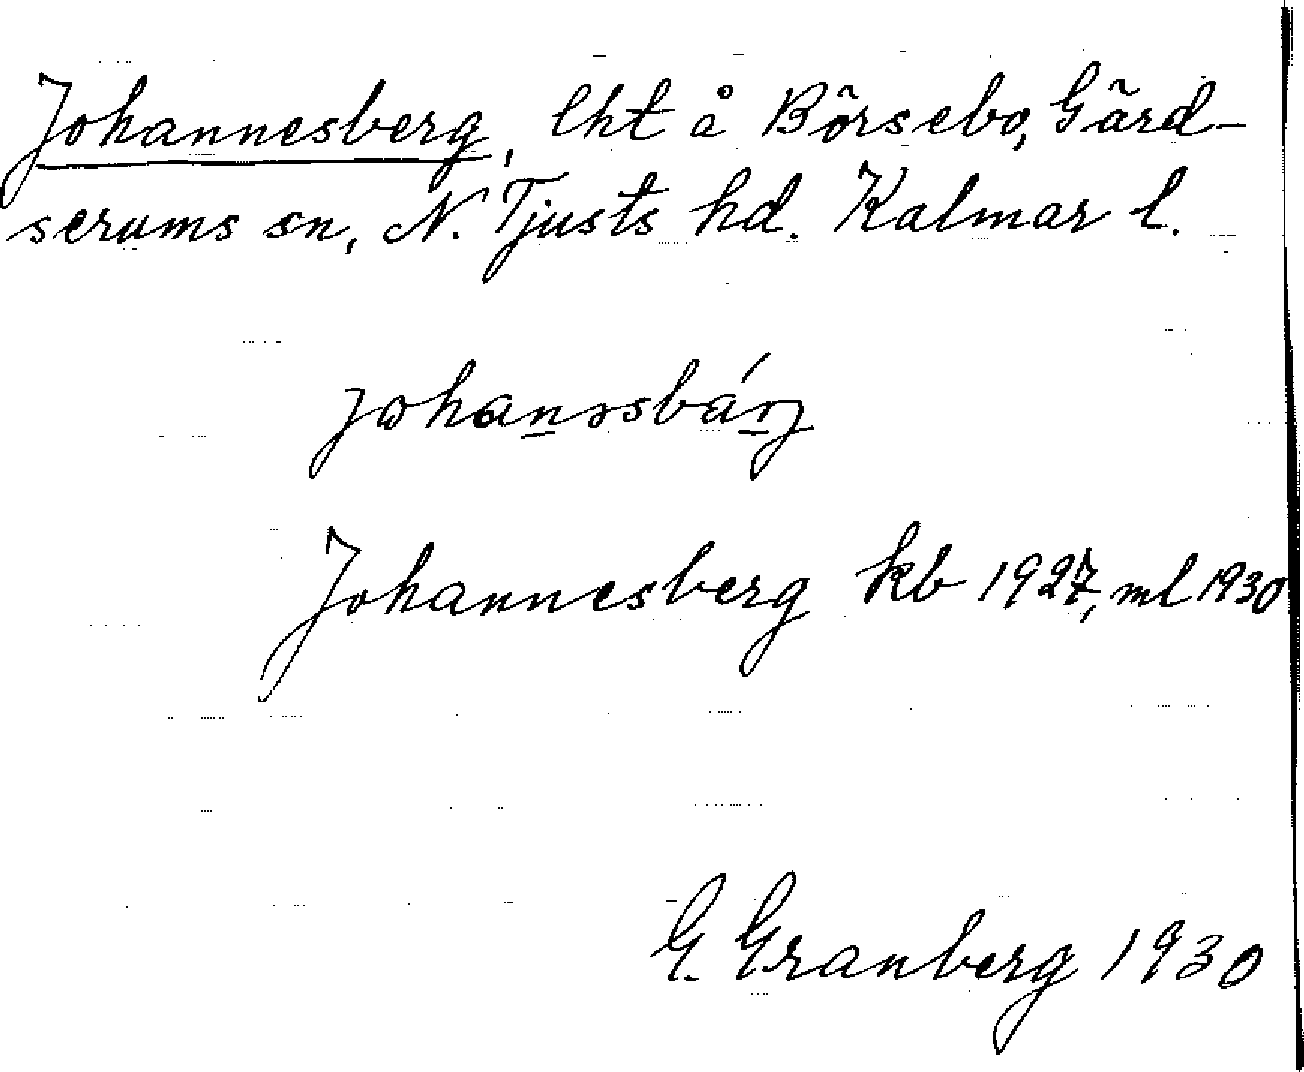 Johannesberg, lht å Börsebo, Gärd-
serums sn, N. Tjusts hd. Kalmar l.
johanəsbárj
Johannesberg kb 1927, ml 1930
G. Granberg 1930